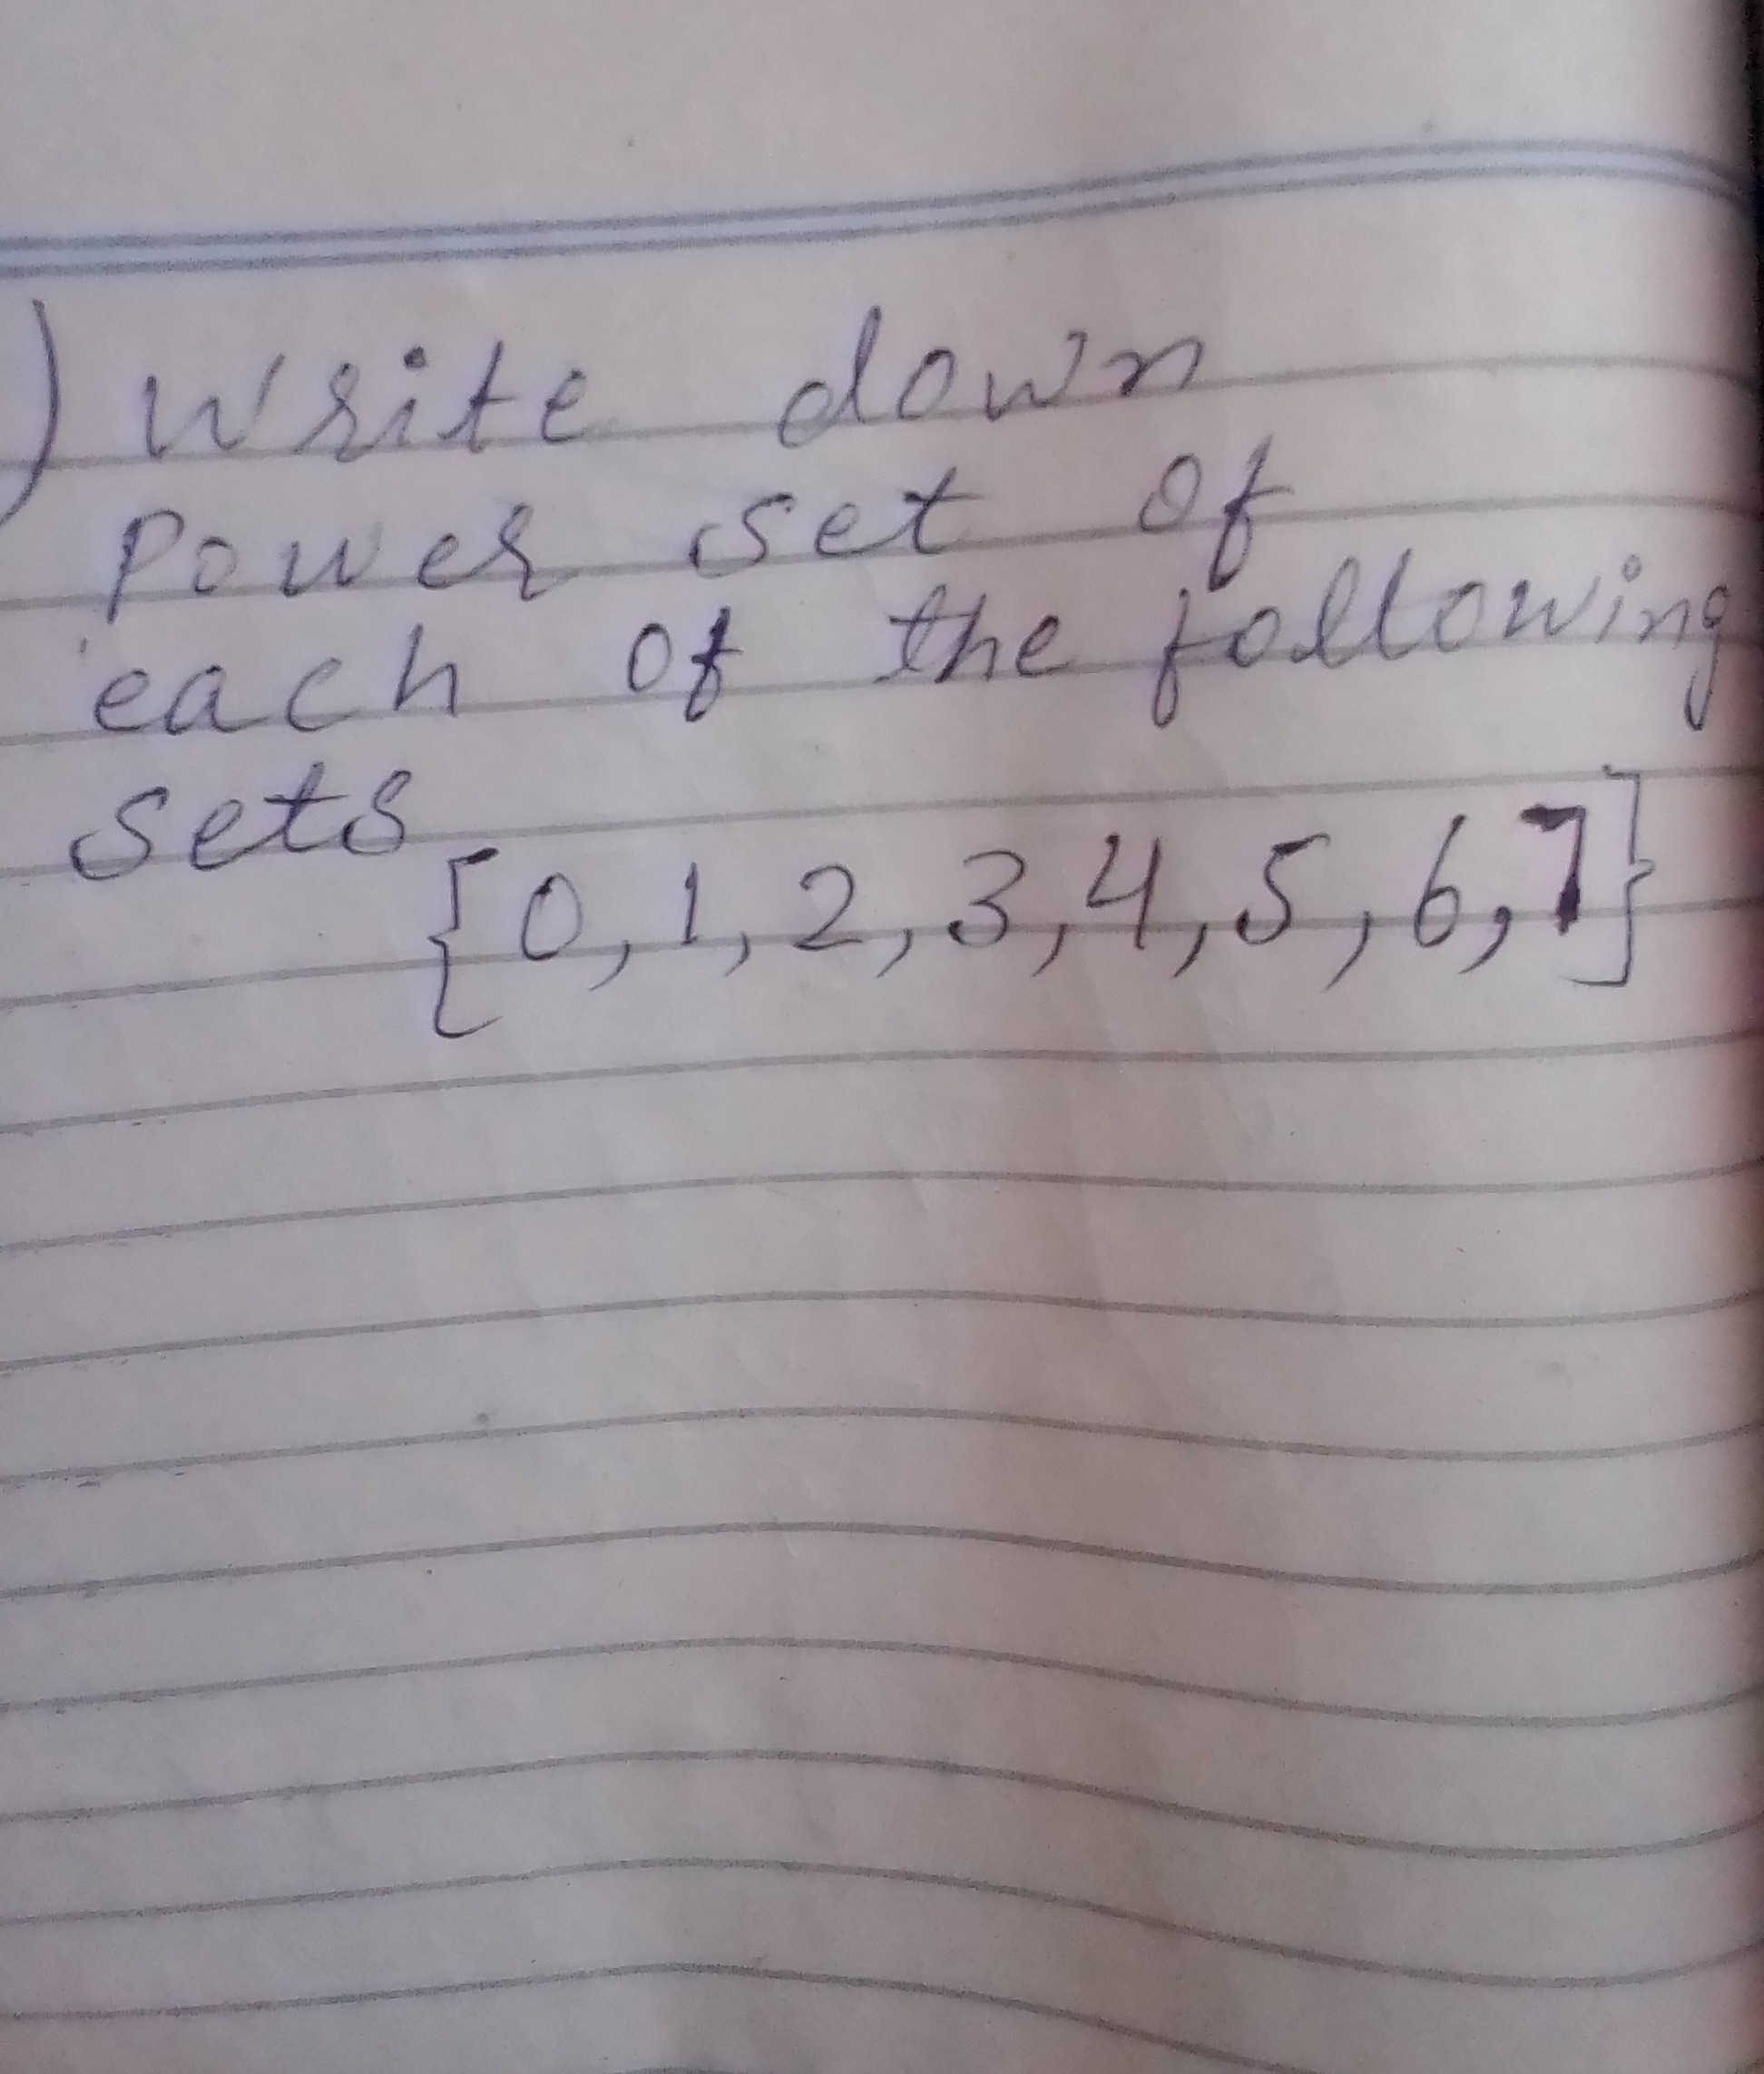 ) Write down
Power set of
each of the following
sets
{0, 1, 2, 3, 4, 5, 6, 7}